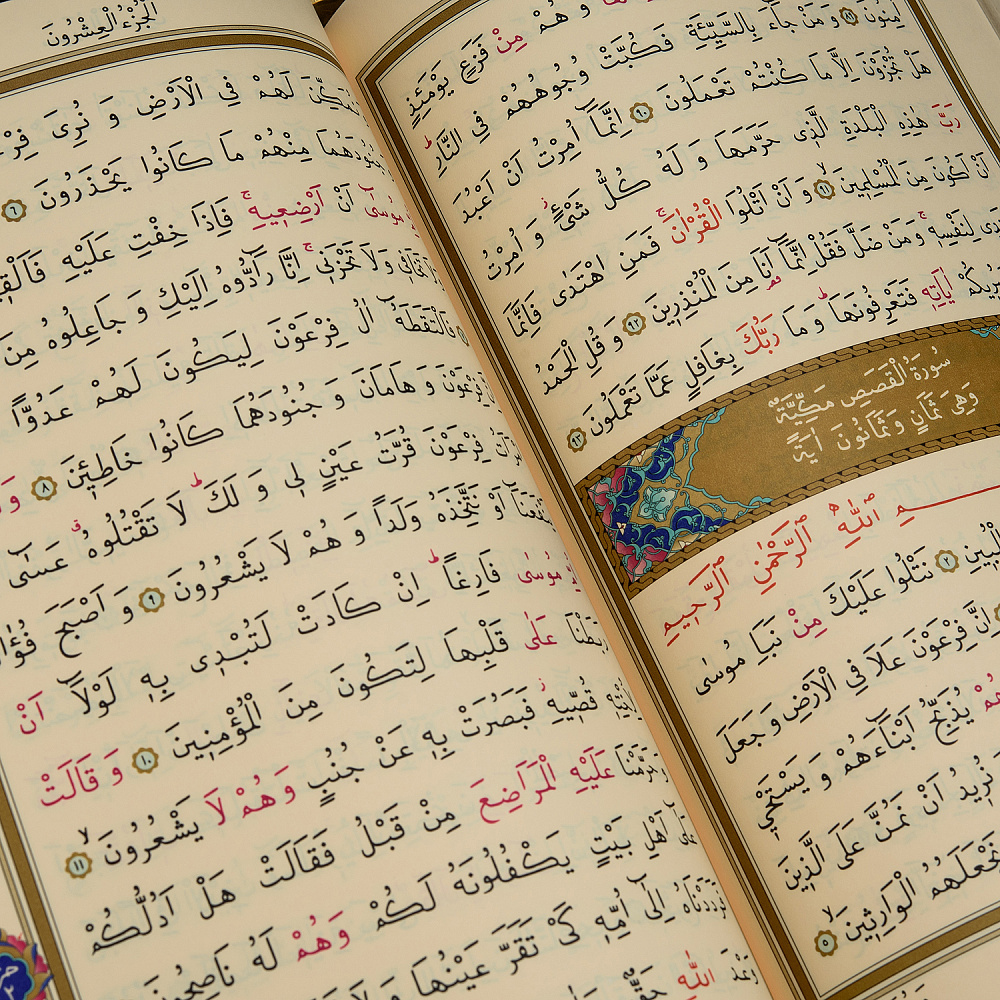 اٰمِنُونَ ﴿٨٩﴾ وَ مَنْ جَٓاءَ بِالسَّيِّئَةِ فَكُبَّتْ وُجُوهُهُمْ فِي النَّارِ
هَلْ تُجْزَوْنَ اِلَّا مَا كُنْتُمْ تَعْمَلُونَ ﴿٩٠﴾ اِنَّمَٓا اُمِرْتُ اَنْ اَعْبُدَ
رَبَّ هٰذِهِ الْبَلْدَةِ الَّذ۪ى حَرَّمَهَا وَ لَهُ كُلُّ شَىْءٍ وَ اُمِرْتُ
اَنْ اَكُونَ مِنَ الْمُسْلِم۪ينَ ﴿٩١﴾ وَ اَنْ اَتْلُوَا الْقُرْاٰنَ فَمَنِ اهْتَدٰى فَاِنَّمَا
يَهْتَد۪ى لِنَفْسِه۪ وَ مَنْ ضَلَّ فَقُلْ اِنَّمَٓا اَنَا مِنَ الْمُنْذِر۪ينَ ﴿٩٢﴾ وَ قُلِ الْحَمْدُ
سَيُر۪يكُمْ اٰيَاتِه۪ فَتَعْرِفُونَهَا وَ مَا رَبُّكَ بِغَافِلٍ عَمَّا تَعْمَلُونَ ﴿٩٣﴾
سُورَةُ الْقَصَصِ مَكِّيَّةٌ
وَهِىَ ثَمَانٍ وَ ثَمَانُونَ اٰيَةً
ـــمِ اللّٰهِ الرَّحْمٰنِ الرَّح۪يمِ
الْمُب۪ينِ ﴿٢﴾ نَتْلُوا عَلَيْكَ مِنْ نَبَاِ مُوسٰى
اِنَّ فِرْعَوْنَ عَلَا فِي الْاَرْضِ وَ جَعَلَ
يُذَبِّحُ اَبْنَٓاءَهُمْ وَ يَسْتَحْي۪
نُر۪يدُ اَنْ نَمُنَّ عَلَى الَّذ۪ينَ
نَجْعَلَهُمُ الْوَارِث۪ينَ ﴿٥﴾
اَلْجُزْءُ الْعِشْرُونَ
نُمَكِّنَ لَهُمْ فِي الْاَرْضِ وَ نُرِىَ فِرْعَ
جُنُودَهُمَا مِنْهُمْ مَا كَانُوا يَحْذَرُونَ ﴿٦﴾
مُوسٰٓى اَنْ اَرْضِع۪يهِ فَاِذَا خِفْتِ عَلَيْهِ فَاَلْق۪ي
تَخَاف۪ى وَ لَا تَحْزَن۪ى اِنَّا رَٓادُّوهُ اِلَيْكِ وَ جَاعِلُوهُ مِنَ
فَالْتَقَطَهُٓ اٰلُ فِرْعَوْنَ لِيَكُونَ لَهُمْ عَدُوًّا
فِرْعَوْنَ وَ هَامَانَ وَ جُنُودَهُمَا كَانُوا خَاطِـ۪ٔينَ ﴿٨﴾
فِرْعَوْنَ قُرَّتُ عَيْنٍ ل۪ى وَ لَكَ لَا تَقْتُلُوهُ عَسٰٓى
يَنْفَعَنَٓا اَوْ نَتَّخِذَهُ وَلَدًا وَ هُمْ لَا يَشْعُرُونَ ﴿٩﴾ وَ اَصْبَحَ فُؤٰا
مُوسٰى فَارِغًا اِنْ كَادَتْ لَتُبْد۪ى بِه۪ لَوْلَٓا اَنْ
رَبَطْنَا عَلٰى قَلْبِهَا لِتَكُونَ مِنَ الْمُؤْمِن۪ينَ ﴿١٠﴾ وَ قَالَتْ
لِاُخْتِه۪ قُصّ۪يهِ فَبَصُرَتْ بِه۪ عَنْ جُنُبٍ وَ هُمْ لَا يَشْعُرُونَ ﴿١١﴾
وَحَرَّمْنَا عَلَيْهِ الْمَرَاضِعَ مِنْ قَبْلُ فَقَالَتْ هَلْ اَدُلُّكُمْ
عَلٰٓى اَهْلِ بَيْتٍ يَكْفُلُونَهُ لَكُمْ وَ هُمْ لَهُ نَاصِحُونَ
فَرَدَدْنَاهُ اِلٰٓى اُمِّه۪ كَىْ تَقَرَّ عَيْنُهَا وَ
وَعْدَ اللّٰهِ حَقٌّ